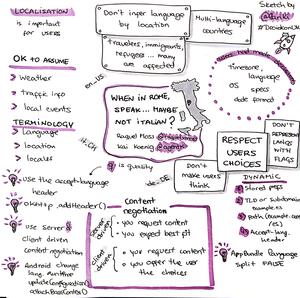 LOCALISATION
is important
for users
OK TO ASSUME
> Weather
> traffic info
> local events
TERMINOLOGY
> Language
> location
> locales
Use the accept-language
header
OkHttp .addHeader()
Use Server &
client driven
context negotiation
Android change
lang. runtime
updateConfiguration()
attachBaseContext()
Don't infer language
by location
Multi-language
countries
travellers, immigrants,
refugees ... many
are affected
en_US
it_CH
de_DE
WHEN IN ROME,
SPEAK... MAYBE
NOT ITALIAN?
Kai Koenig
q is quality
Don't
make users
think
Content
negotiation
Server driven
> you request content
> you expect best fit
client driven
> you request content
> you offer the user
the choices
Sketch by
timezone,
language
OS specs
date format
DON'T
REPRESENT
LANGS
WITH
FLAGS
RESPECT
USERS
CHOICES
DYNAMIC
Stored prefs
TLD or subdomain
Accept-lang.
header
App Bundle language
split FALSE